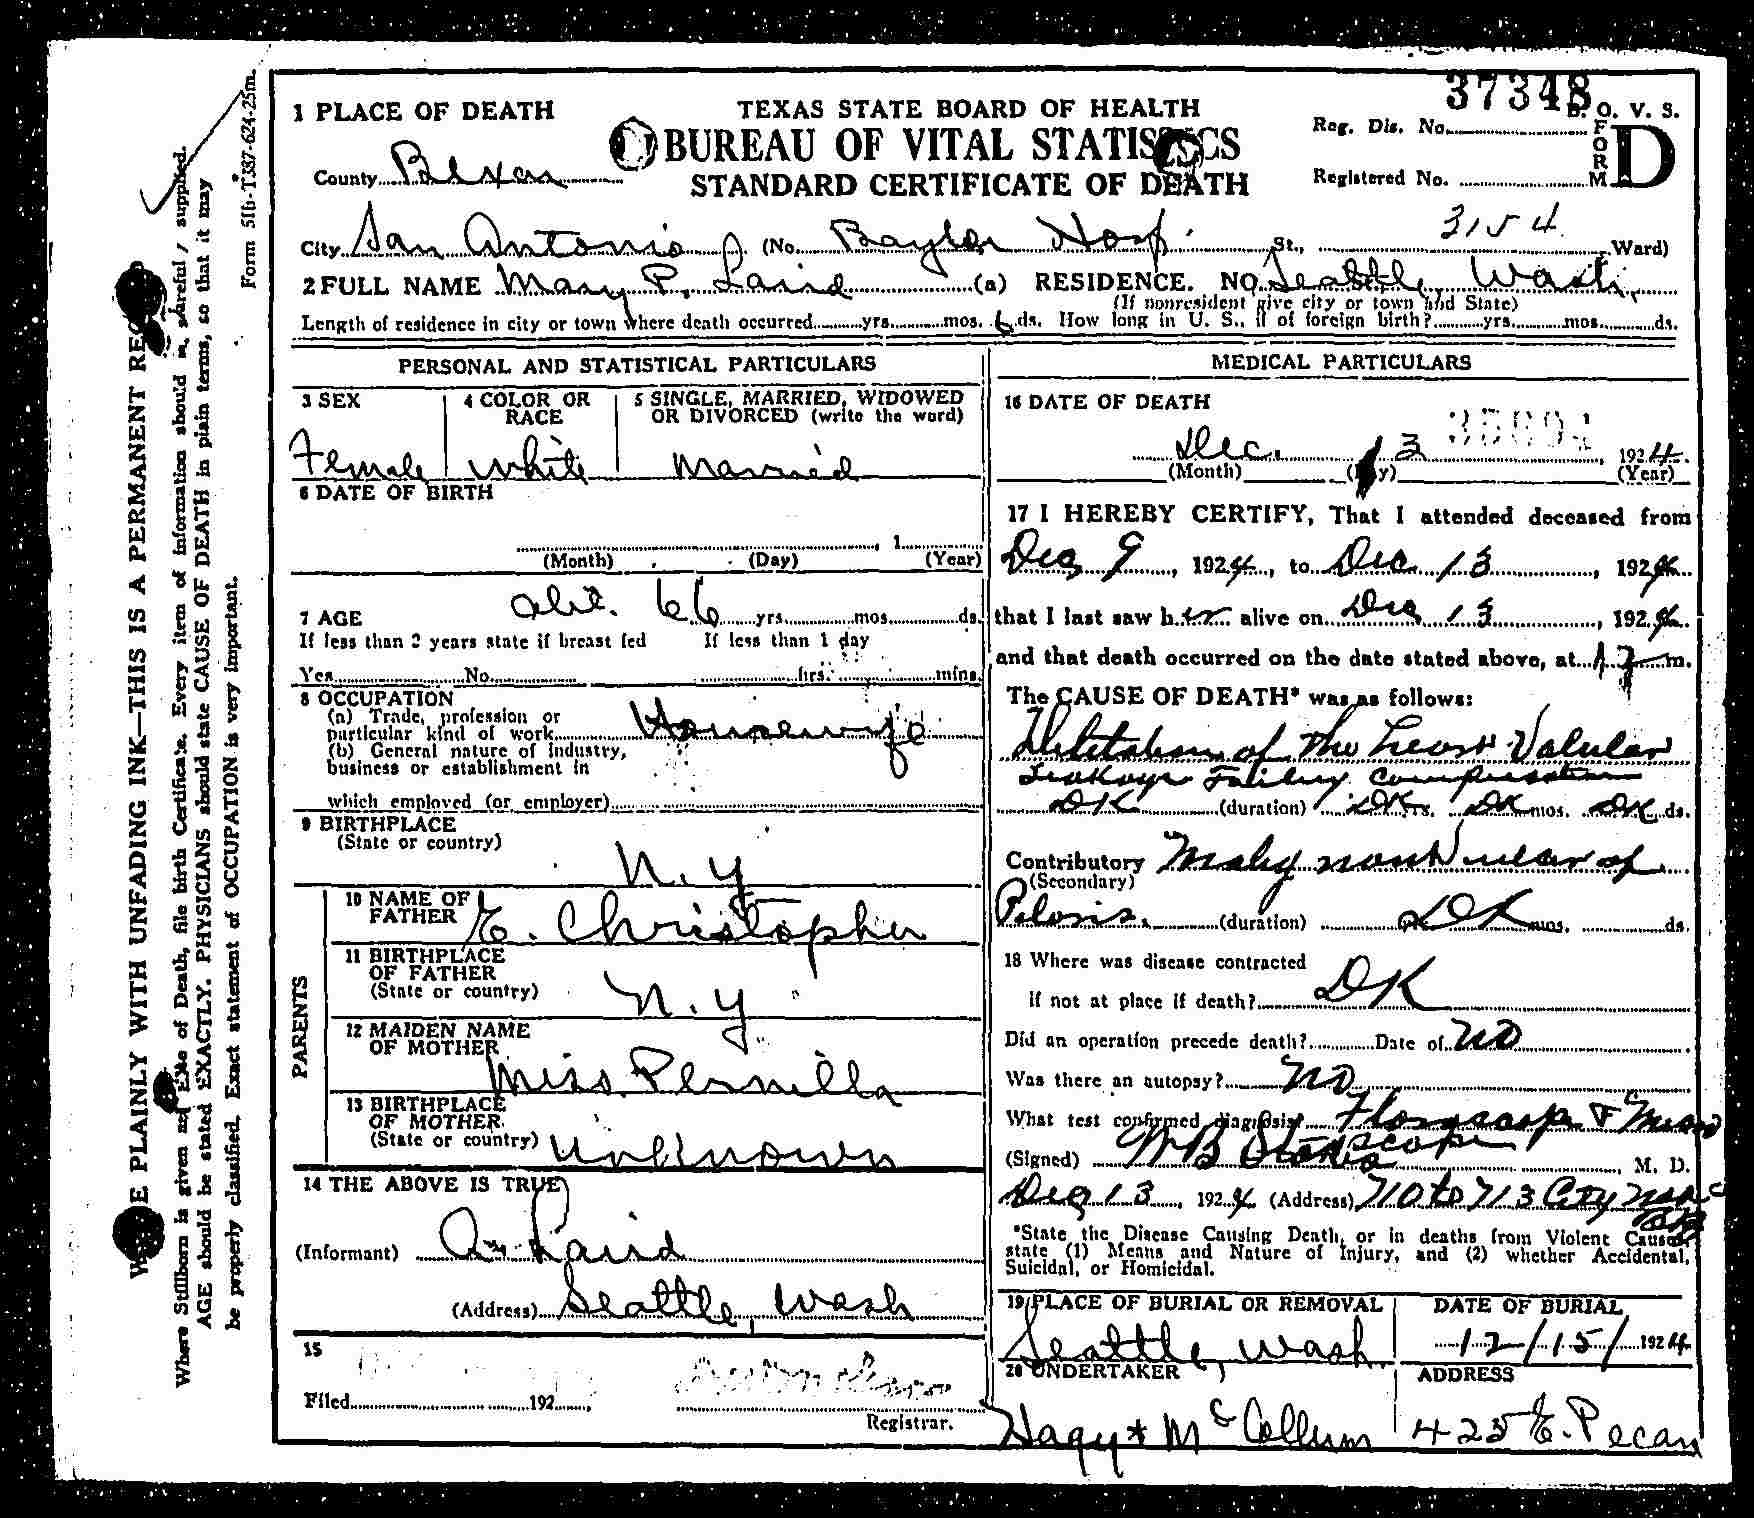 37348
1 PLACE OF DEATH
TEXAS STATE BOARD OF HEALTH
B. O. V. S.
BUREAU OF VITAL STATISTICS
Reg. Dis. No.
FORM D
County Bexar
STANDARD CERTIFICATE OF DEATH
Registered No.
3154
City San Antonio (No. Baylor Hosp. St., Ward)
2 FULL NAME Mary P. Laird (a) RESIDENCE. NO. Seattle, Wash.
(If nonresident give city or town and State)
Length of residence in city or town where death occurred yrs. mos. 6 ds. How long in U. S., if of foreign birth? yrs. mos. ds.
PERSONAL AND STATISTICAL PARTICULARS
3 SEX
4 COLOR OR RACE
5 SINGLE, MARRIED, WIDOWED OR DIVORCED (write the word)
Female
White
Married
6 DATE OF BIRTH
, 1
(Month) (Day) (Year)
7 AGE abt. 66 yrs. mos. ds.
If less than 2 years state if breast fed If less than 1 day
Yes No hrs. mins.
8 OCCUPATION
(a) Trade, profession or
particular kind of work Housewife
(b) General nature of industry,
business or establishment in
which employed (or employer)
9 BIRTHPLACE
(State or country)
N. Y
PARENTS
10 NAME OF FATHER E. Christopher
11 BIRTHPLACE OF FATHER
(State or country) N. Y
12 MAIDEN NAME OF MOTHER
Miss Pernilla
13 BIRTHPLACE OF MOTHER.
(State or country) Unknown
14 THE ABOVE IS TRUE
(Informant) Laird
(Address) Seattle, Wash
15
Filed 192
Registrar.
MEDICAL PARTICULARS
16 DATE OF DEATH
Dec. 13 1924
(Month) (Day) (Year)
17 I HEREBY CERTIFY, That I attended deceased from
Dec 9, 1924, to Dec 13, 1924
that I last saw her alive on Dec 13, 1924
and that death occurred on the date stated above, at m.
The CAUSE OF DEATH* was as follows:
Dilitation of the heart Valvular
Leakage Failing compensation
DK (duration) DK yrs. DK mos. DK ds.
Contributory
(Secondary)
(duration) DK mos. ds.
18 Where was disease contracted
if not at place if death? DK
Did an operation precede death? Date of No
Was there an autopsy? No
What test confirmed diagnosis?
(Signed) WB M. D.
Dec 13, 1924 (Address) 710 to 713 City
*State the Disease Causing Death, or in deaths from Violent Causes,
state (1) Means and Nature of Injury, and (2) whether Accidental,
Suicidal, or Homicidal.
19 PLACE OF BURIAL OR REMOVAL
DATE OF BURIAL
Seattle, Wash.
12/15/ 1924
20 UNDERTAKER
ADDRESS
Hagy & McCollum
425 E. Pecan
Form 516-T387-624-25m.
PLAINLY WITH UNFADING INK—THIS IS A PERMANENT
Where Stillborn is given as of Death, file birth Certificate. Every item of information should careful / supplied.
AGE should be stated EXACTLY. PHYSICIANS should state CAUSE OF DEATH in plain terms, so that it may
be properly classified. Exact statement of OCCUPATION is very important.